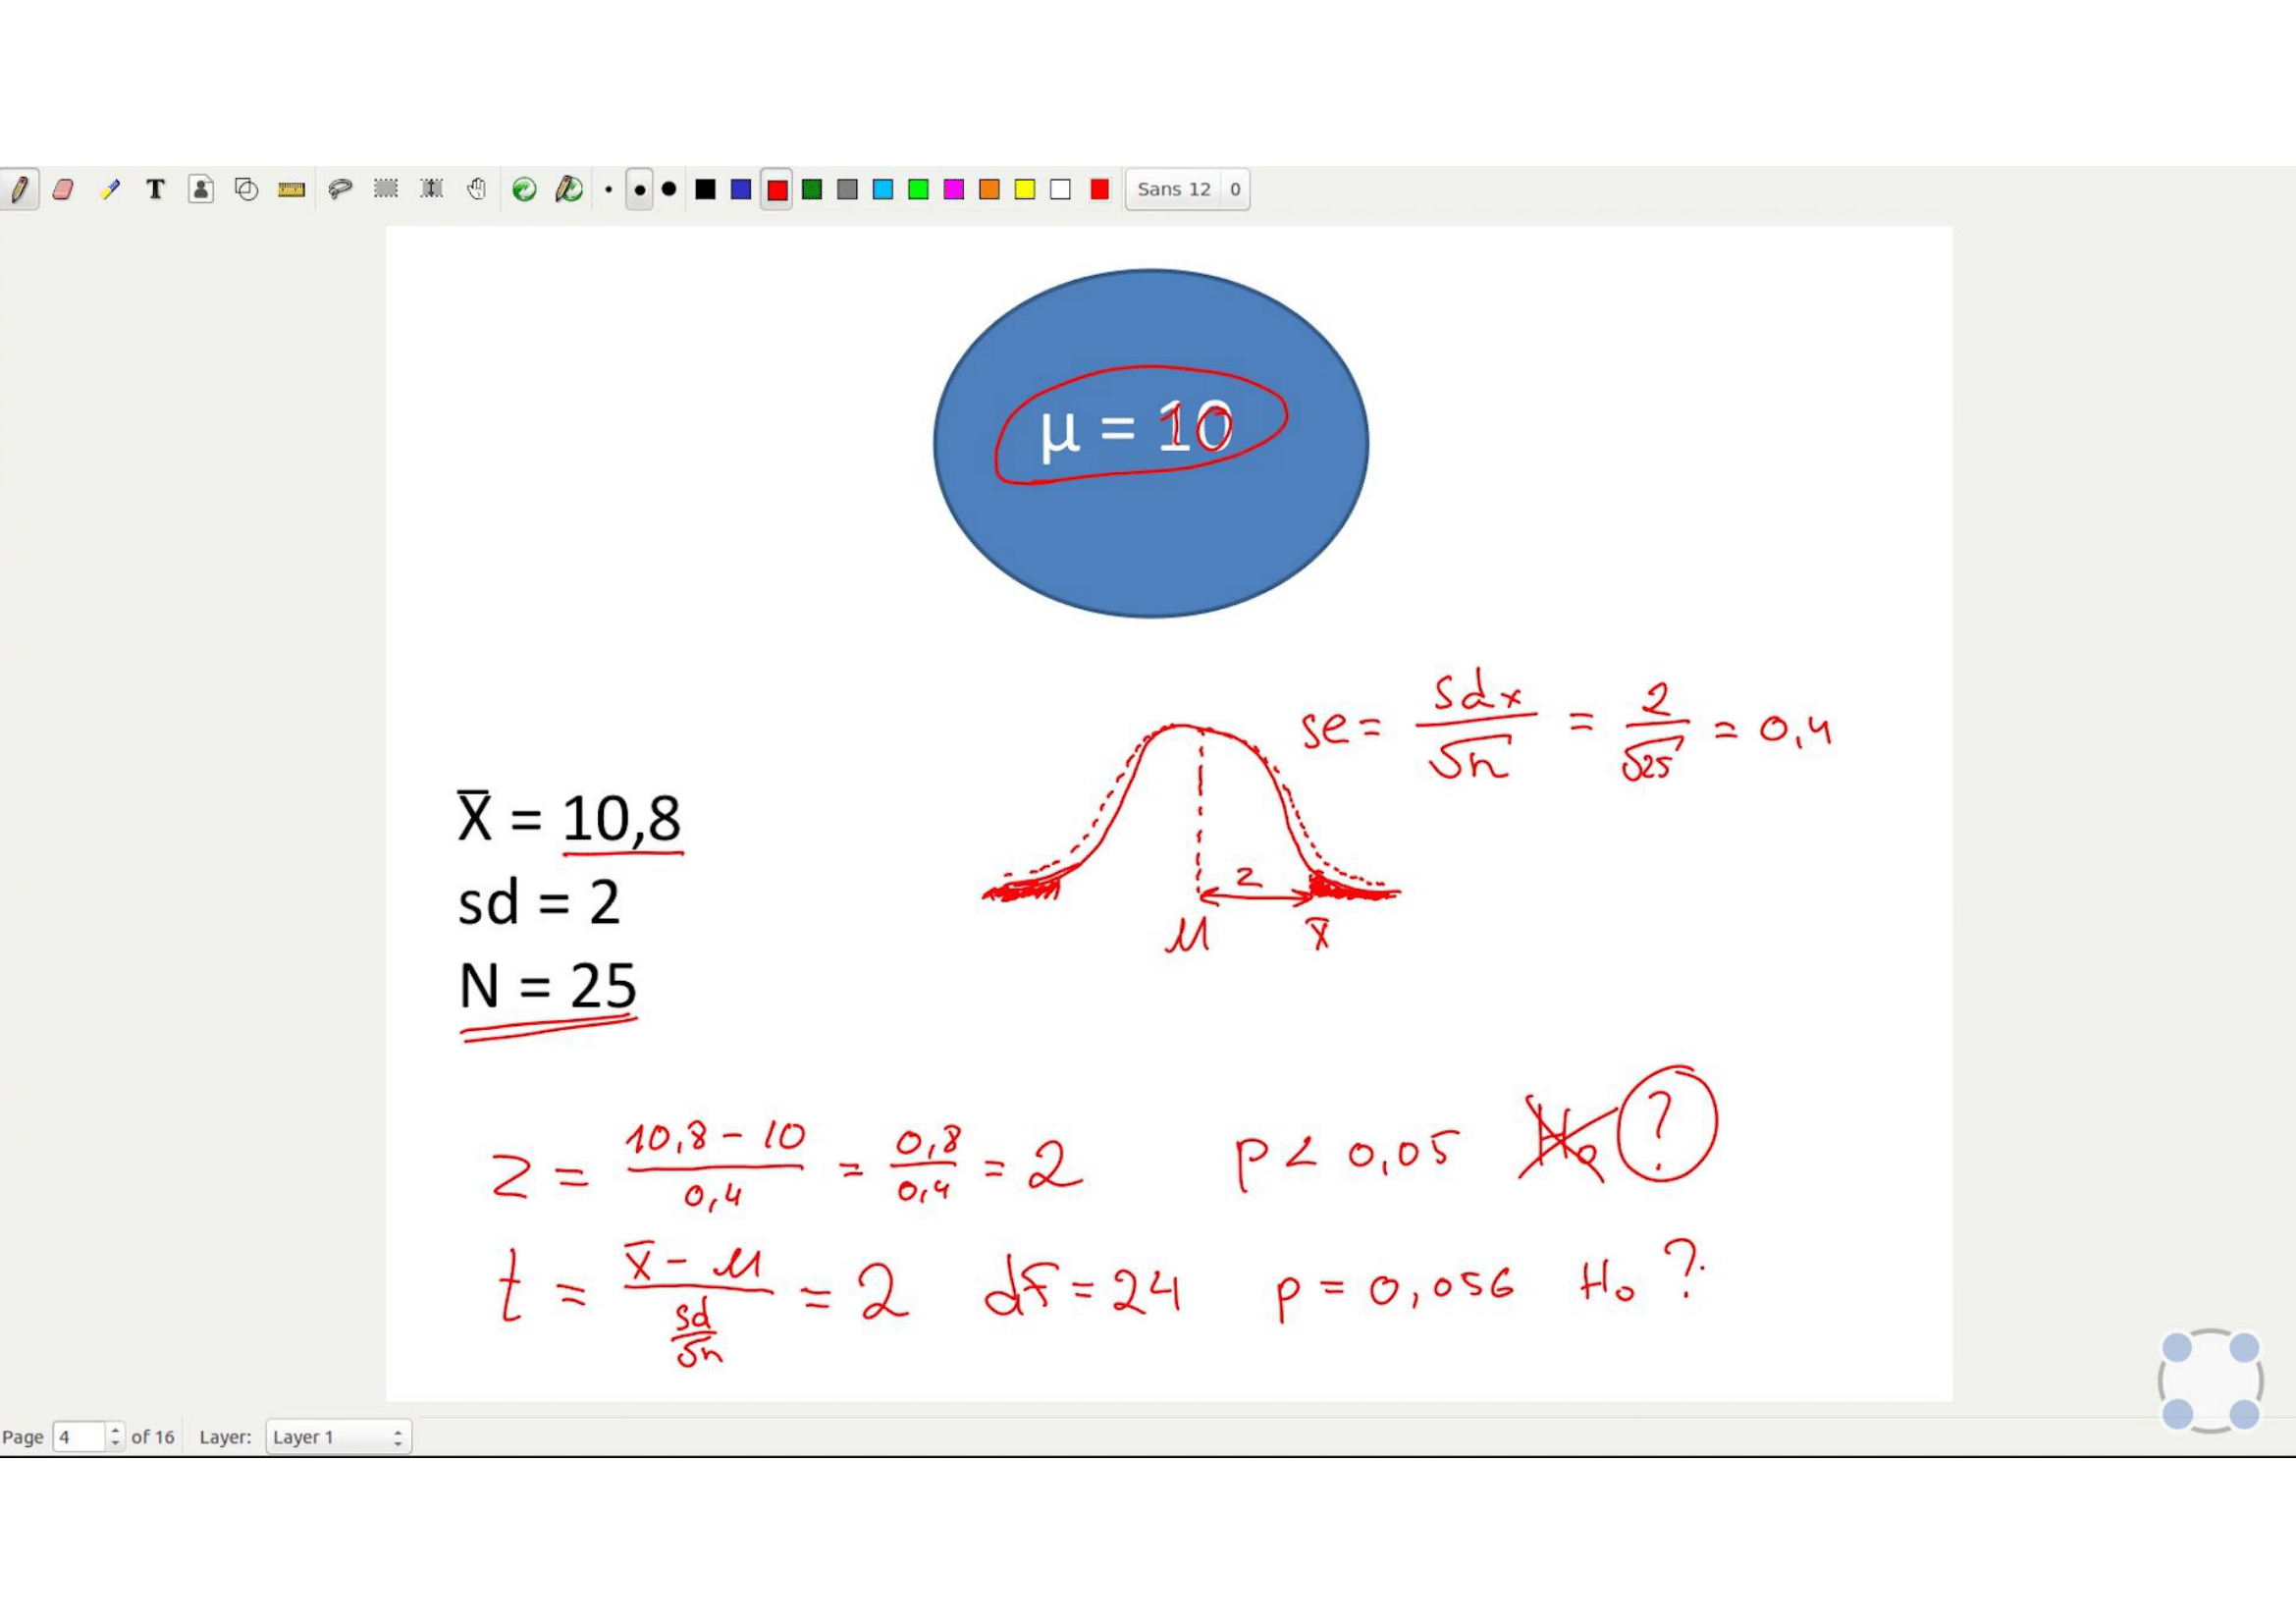 T Sans 12 0
μ = 10
se = sdx/√n = 2/√25 = 0,4
X̄ = 10,8
sd = 2
N = 25
2
μ x̄
z = 10,8 - 10/0,4 = 0,8/0,4 = 2 p < 0,05 H₀ ?
t = x̄ - μ/sd/√n = 2 df = 24 p = 0,056 H₀ ?
Page 4 of 16 Layer: Layer 1